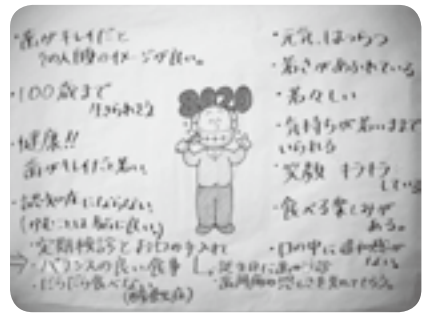 ・歯がキレイだと
その人自身のイメージが良い。
・100歳まで
生きられそう
・健康!!
歯がキレイだと若い
・認知症にならない
(噛むことは脳に良い)
・定期検診とお口の手入れ
⇒・バランスの良い食事
・だらだら食べない
8020
・元気、はつらつ
・若さがあふれている
・若々しい
・気持ちが若いままで
いられる
・笑顔 キラキラ
している
・食べる楽しみが
ある。
・口の中に違和感が
ない